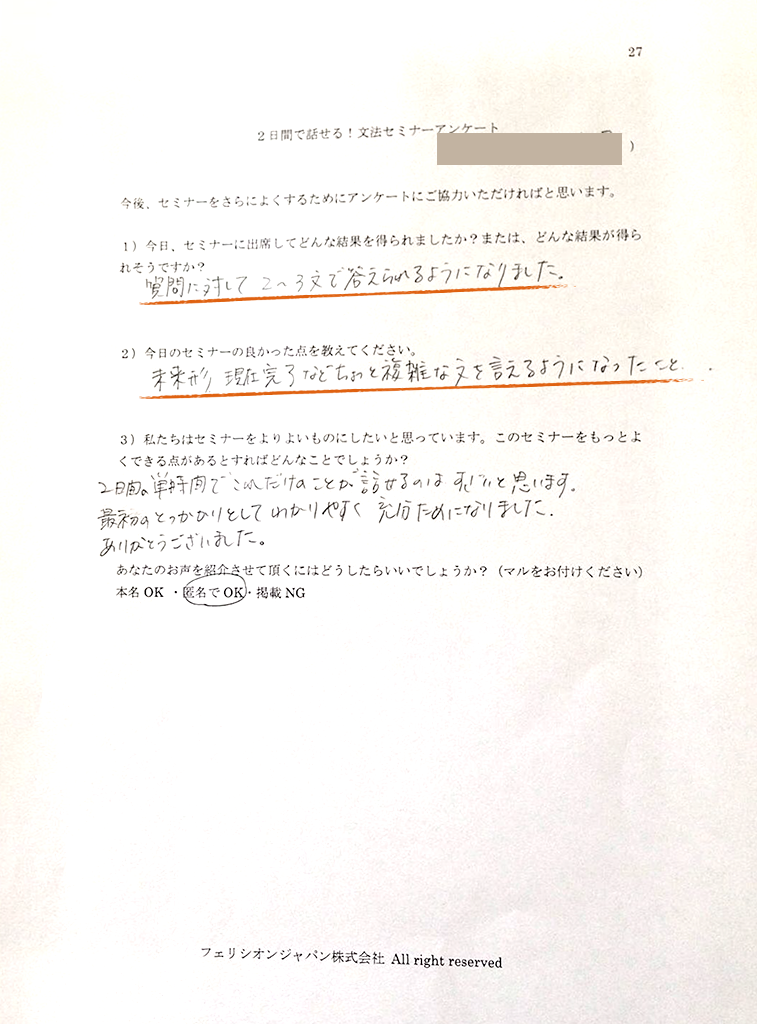 27
2日間で話せる！文法セミナーアンケート
)
今後、セミナーをさらによくするためにアンケートにご協力いただければと思います。
1）今日、セミナーに出席してどんな結果を得られましたか？または、どんな結果が得ら
れそうですか？
質問に対して2～3文で答えられるようになりました。
2）今日のセミナーの良かった点を教えてください。
未来形、現在完了などちょっと複雑な文を言えるようになったこと.
3）私たちはセミナーをよりよいものにしたいと思っています。このセミナーをもっとよ
くできる点があるとすればどんなことでしょうか？
2日間の単時間でこれだけのことが話せるのはすごいと思います。
最初のとっかかりとしてわかりやすく充分ためになりました.
ありがとうございました。
あなたのお声を紹介させて頂くにはどうしたらいいでしょうか？（マルをお付けください）
本名OK ・匿名でOK・掲載NG
フェリシオンジャパン株式会社 All right reserved